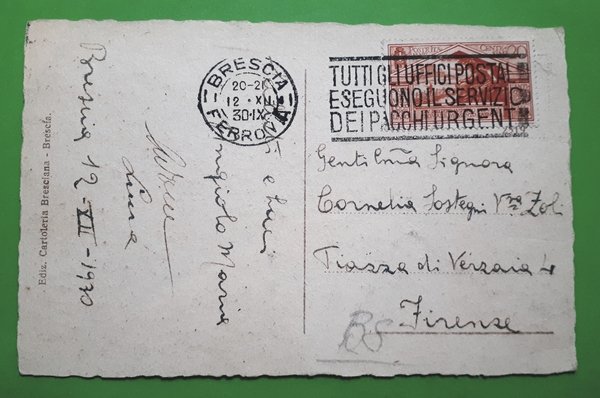 Ediz. Cartoleria Bresciana - Brescia.
Brescia 12-XII-1930
Luisa
Maria
BRESCIA
20-21
12 XII
30 IX
FERROVIA
CENT. 20
TUTTI GLI UFFICI POSTALI
ESEGUONO IL SERVIZIO
DEI PACCHI URGENTI
Gentilma Signora
Cornelia Sostegni Vva Zoli
Piazza di Verzaia 4
Firenze
BS